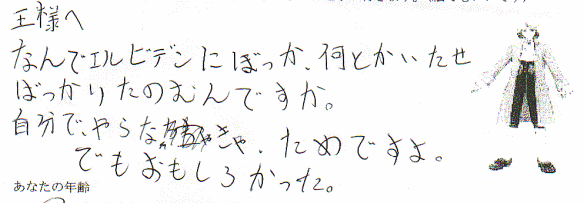 王様へ
なんでエルビデンにばっか、何とかいたせ
ばっかりたのむんですか。
自分で、やらなきゃ、ためですよ。
でもおもしろかった。
あなたの年齢